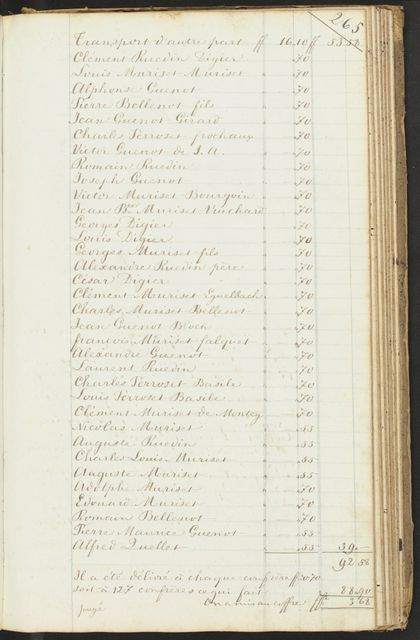 265
Transport d'autre part ff 16.10 ff 53.58
Clément Ruedin Digier " .70
Louis Muriset Muriset " .70
Alphonse Guenot " .70
Pierre Bellenot fils " .70
Jean Guenot Girard " .70
Charles Perroset frochaux " .70
Victor Guenot de J. A. " .70
Romain Ruedin " .70
Joseph Guenot " .70
Victor Muriset Bourgoin " .70
Jean Bte Muriset Vuichard " .70
Georges Digier " .70
Louis Digier " .70
Georges Muriset fils " .70
Alexandre Ruedin père " .70
César Digier " .70
Clément Muriset " .70
Charles Muriset Bellenot " .70
Jean Guenot Bloch " .70
françois Muriset falquet " .70
Alexandre Guenot " .70
Laurent Ruedin " .70
Charles Perroset Basile " .70
Louis Perroset Basile " .70
Clément Muriset de Montey " .70
Nicolas Muriset " .55
Auguste Ruedin " .55
Charles Louis Muriset " .55
Auguste Muriset " .55
Adolphe Muriset " .70
Edouard Muriset " .70
Romain Bellenot " .70
Pierre Maurice Guenot " .55
Alfred Quellet " .55 39.
92.58
Il a été délivré à chaque confrère ff 0.70
soit à 127 confrères ce qui fait 88.90
On a mis au coffre ff 3.68